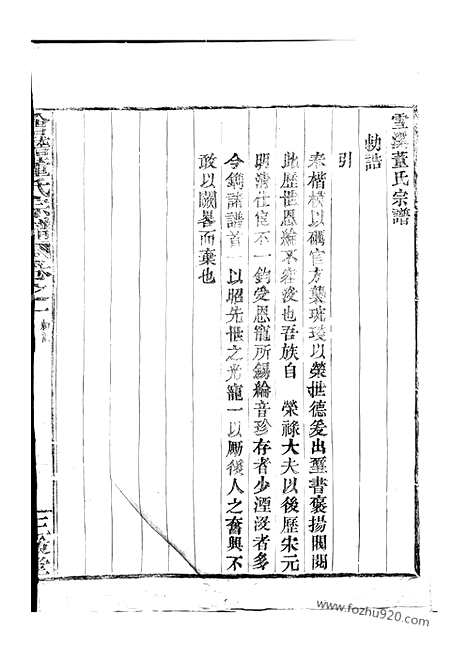 雪溪董氏宗譜
勅誥
引
奉楷模以礪官方襲琬琰以榮世德爰出璽書褒揚閥閱
此歷世恩綸不容沒也吾族自 榮祿大夫以後歷宋元
明清仕宦不一鈞受恩寵所錫綸音珍存者少湮沒者多
今鐫諸譜首一以昭先世之光寵一以勵後人之奮興不
敢以闕畧而棄也
氏宗譜 卷之一
三 堂
www.fozhu920.com